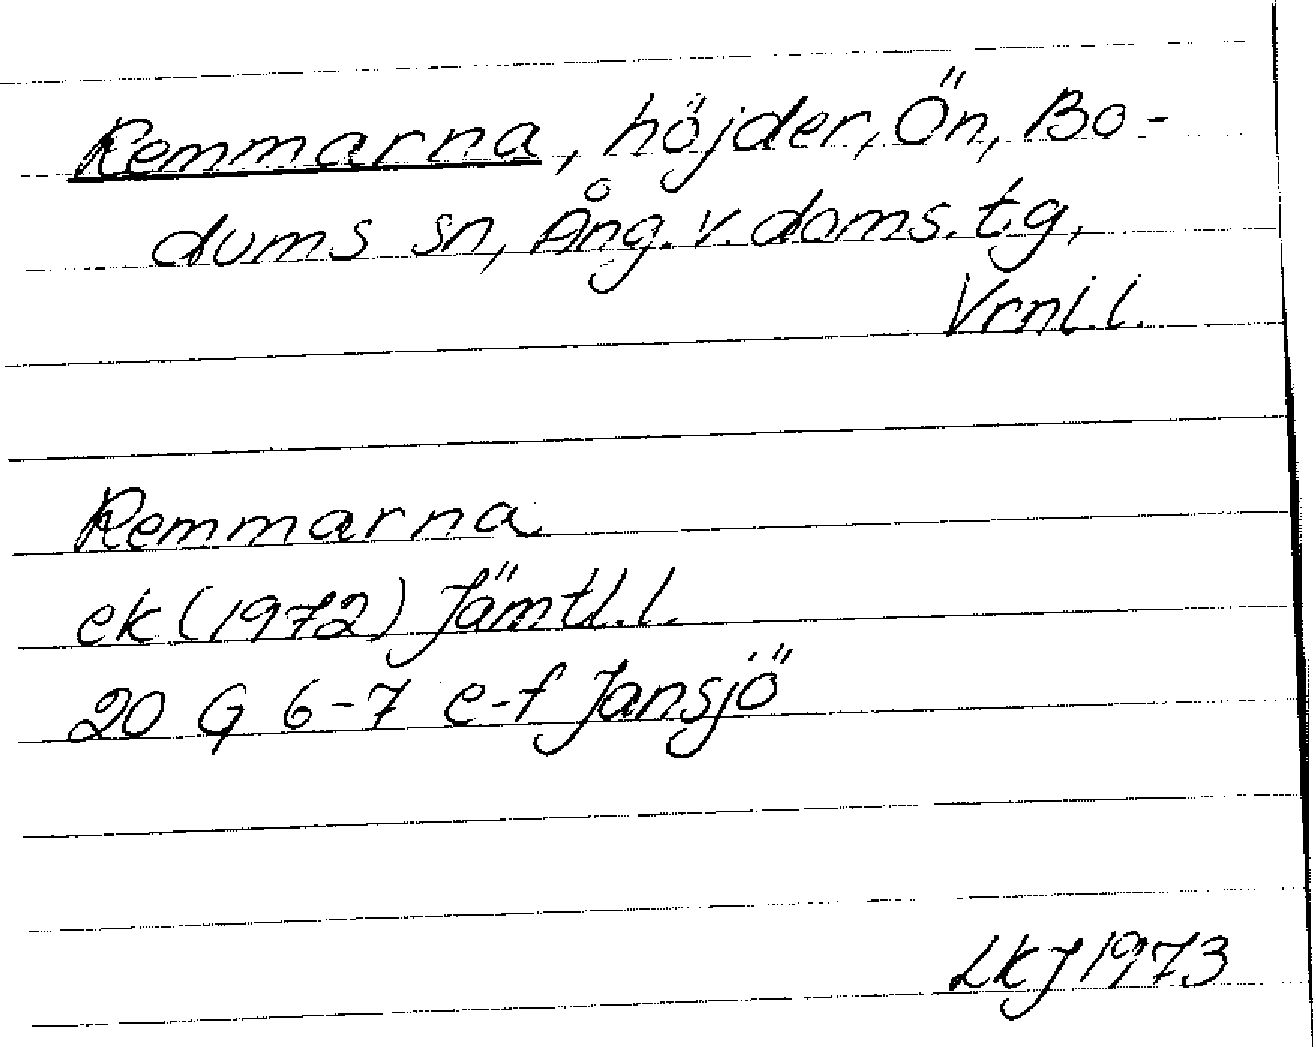 Remmarna, höjder, Ön, Bo-
dums sn, Ång. v. doms. tg,
Vrnl. l.
Remmarna
ek (1972) Jämtl. l.
20 G 6-7 e-f Jansjö
LKJ 1973